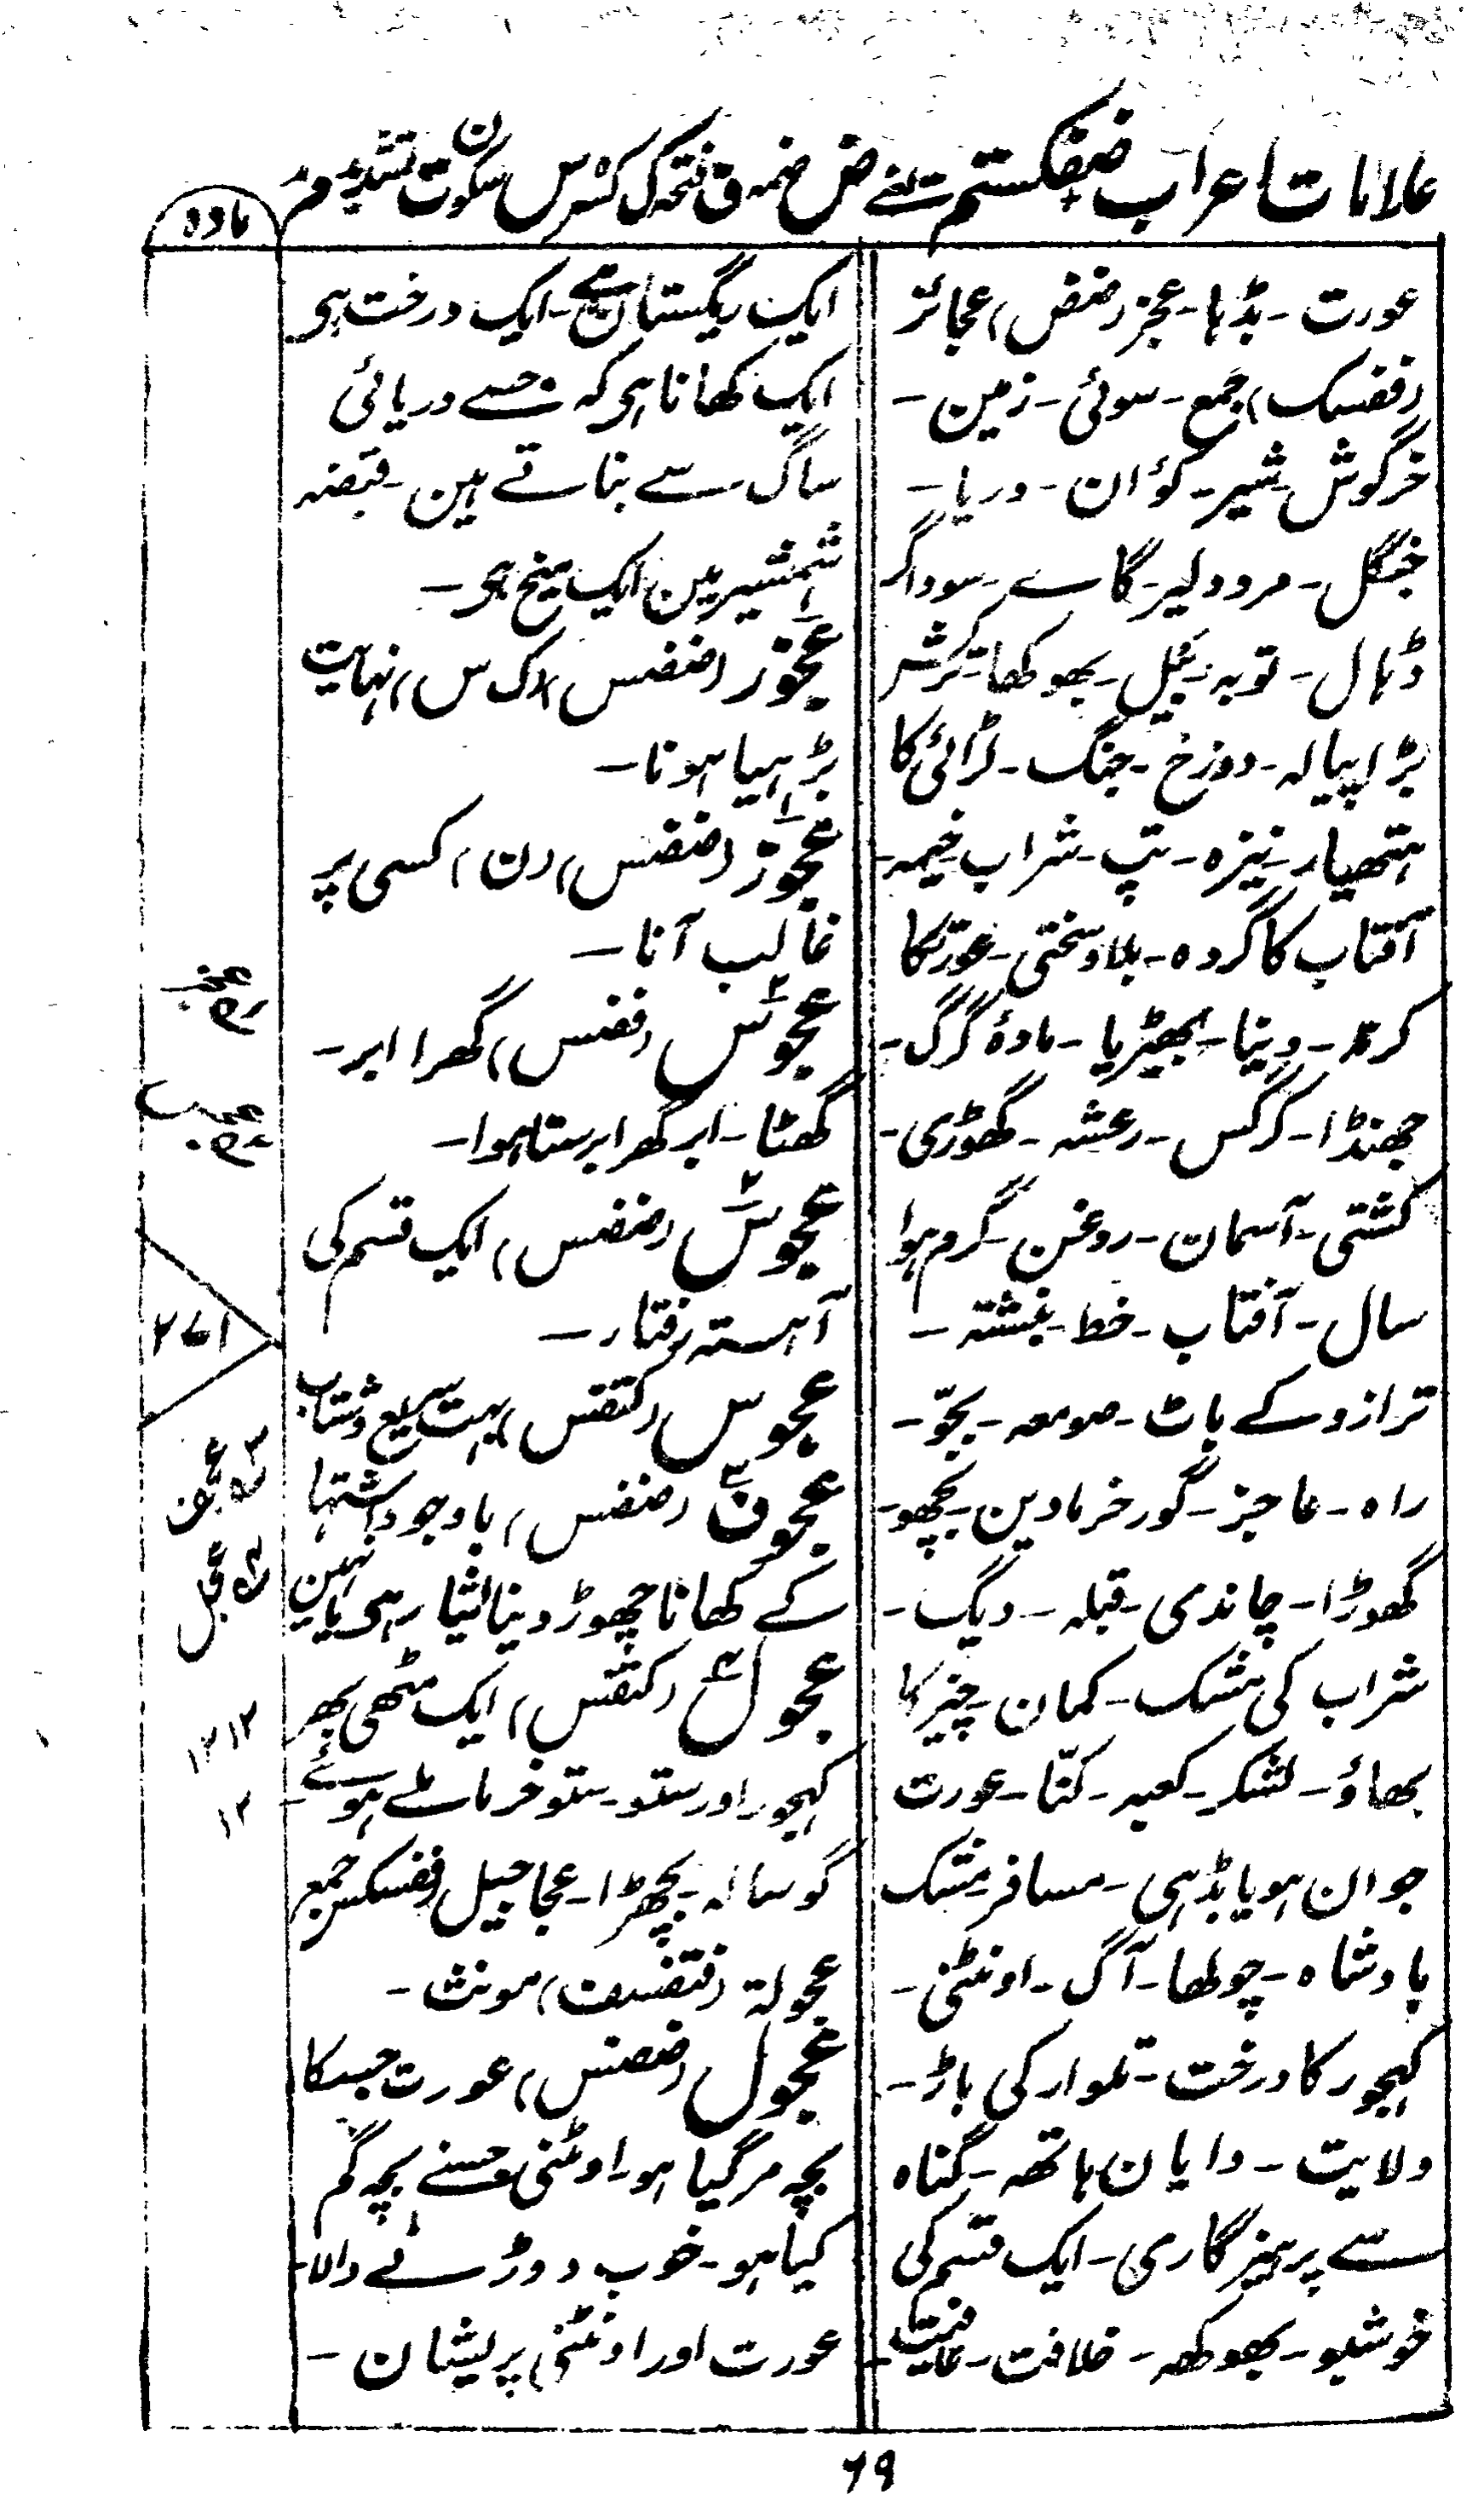 علامات اعراب ضفکستم یعنے ض ضمہ ف فتحہ ک کسرہ س سکون ت تشدید م مد
مادہ
عورت - بڈہا - عجز (ضض) عجائز
(ففسک) جمع - سوئی - زمین -
خرگوش - شیر - کوٗان - دریا -
جنگل - مرد دلیر - گاے - سوداگر
ڈہال - توبہ - بیل - بھوکھا - ترکش
بڑا پیالہ - دوزخ - جنگ - لڑائی کا
ہتھیار - نیزہ - تپ - شراب - خیمہ -
آفتاب کا گردہ - بلا و سختی - عورتکا
کرتہ - دینا - بھیڑیا - مادۂ گرگ -
جھنڈا - کرگس - رعشہ - گھوڑی -
کشتی - آسمان - روغن - گرم ہوا
سال - آفتاب - خط - نبشتہ -
ترازو کے باٹ - صومعہ - بجّو -
راہ - عاجز - گورخر مادین - بچھو -
گھوڑا - چاندی - قبلہ - دیگ -
شراب کی مشک - کمان - چیز کا
بھاؤ - لشکر - کعبہ - کتّا - عورت
جوان ہو یا بڈہی - مسافر - مشک
بادشاہ - چولھا - آگ - اونٹنی -
کہجور کا درخت - تلوار کی باڑ -
ولایت - دایان ہاتھہ - گناہ
سے پرہیزگاری - ایک قسم کی
خوشبو - بھوکھہ - خلافت - عافیت -
ایک ریگستان ہے - ایک درخت ہی
ایک کھانا ہی کہ جسے دریائی
ساگ سے بناتے ہین - قبضہ
شمشیر مین ایک میخ ہی -
عجوز (ضضس) (ک س) نہایت
بڑہیا ہونا -
عجوز (ضضس) (ن) کسی پر
غالب آنا -
عجوس (ففس) گھرا ابر -
گھٹا - ابر گھرا برستا ہوا -
عجوس (ضضس) ایک قسم کی
آہستہ رفتار -
عجوس (کتفس) بہت سریع و شتاب
عجوف (ضضس) باوجود اشتہا
کے کھانا چھوڑ دینا ایثار ہی یا نہین
عجول (کتفس) ایک مٹھی بھر
کہجور اور ستو - ستو خرما ملے ہوئے -
گوسالہ - بچھڑا - عجاجیل (ففسکس) جمع
عجولۃ (کتفسف) مونث -
عجول (ضضس) عورت جسکا
بچہ مرگیا ہو - اونٹنی جسنے بچہ گم
کیا ہو - خوب دوڑنے والا -
عورت اور اونٹنی پریشان -
۲۷۱
۱۲
۶۹